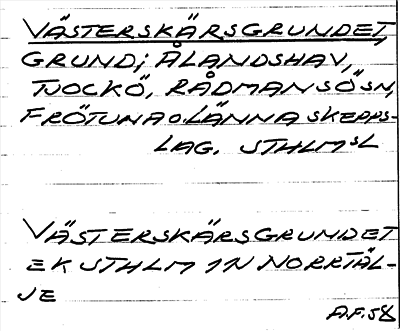 VÄSTERSKÄRSGRUNDET,
GRUND; ÅLANDSHAV,
TJOCKÖ, RÅDMANSÖ SN,
FRÖTUNA O. LÄNNA SKEPPS-
LAG. STHLMSL
VÄSTERSKÄRSGRUNDET
EK STHLM 1N NORRTÄL-
JE
A.F. 58